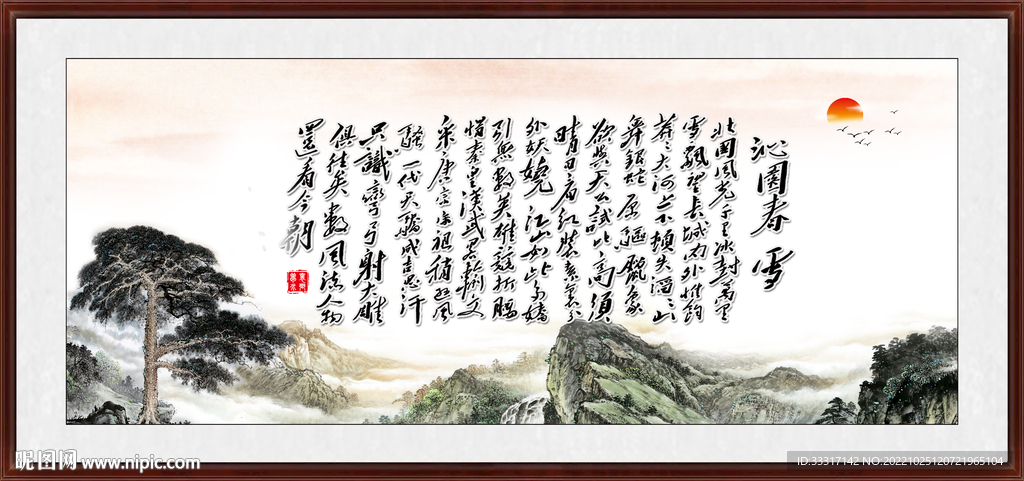 沁園春 雪
北國風光千里冰封萬里
雪飄望長城內外惟餘
莽々大河上下頓失滔々山
舞銀蛇原驅臘象
欲與天公試比高須
晴日看紅裝素裹分
外妖嬈江山如此多嬌
引無數英雄競折腰
惜秦皇漢武略輸文
采唐宗宋祖稍遜風
騷一代天驕成吉思汗
只識彎弓射大雕
俱往矣數風流人物
還看今朝
昵图网 www.nipic.com
ID:33317142 NO:20221025120721965104